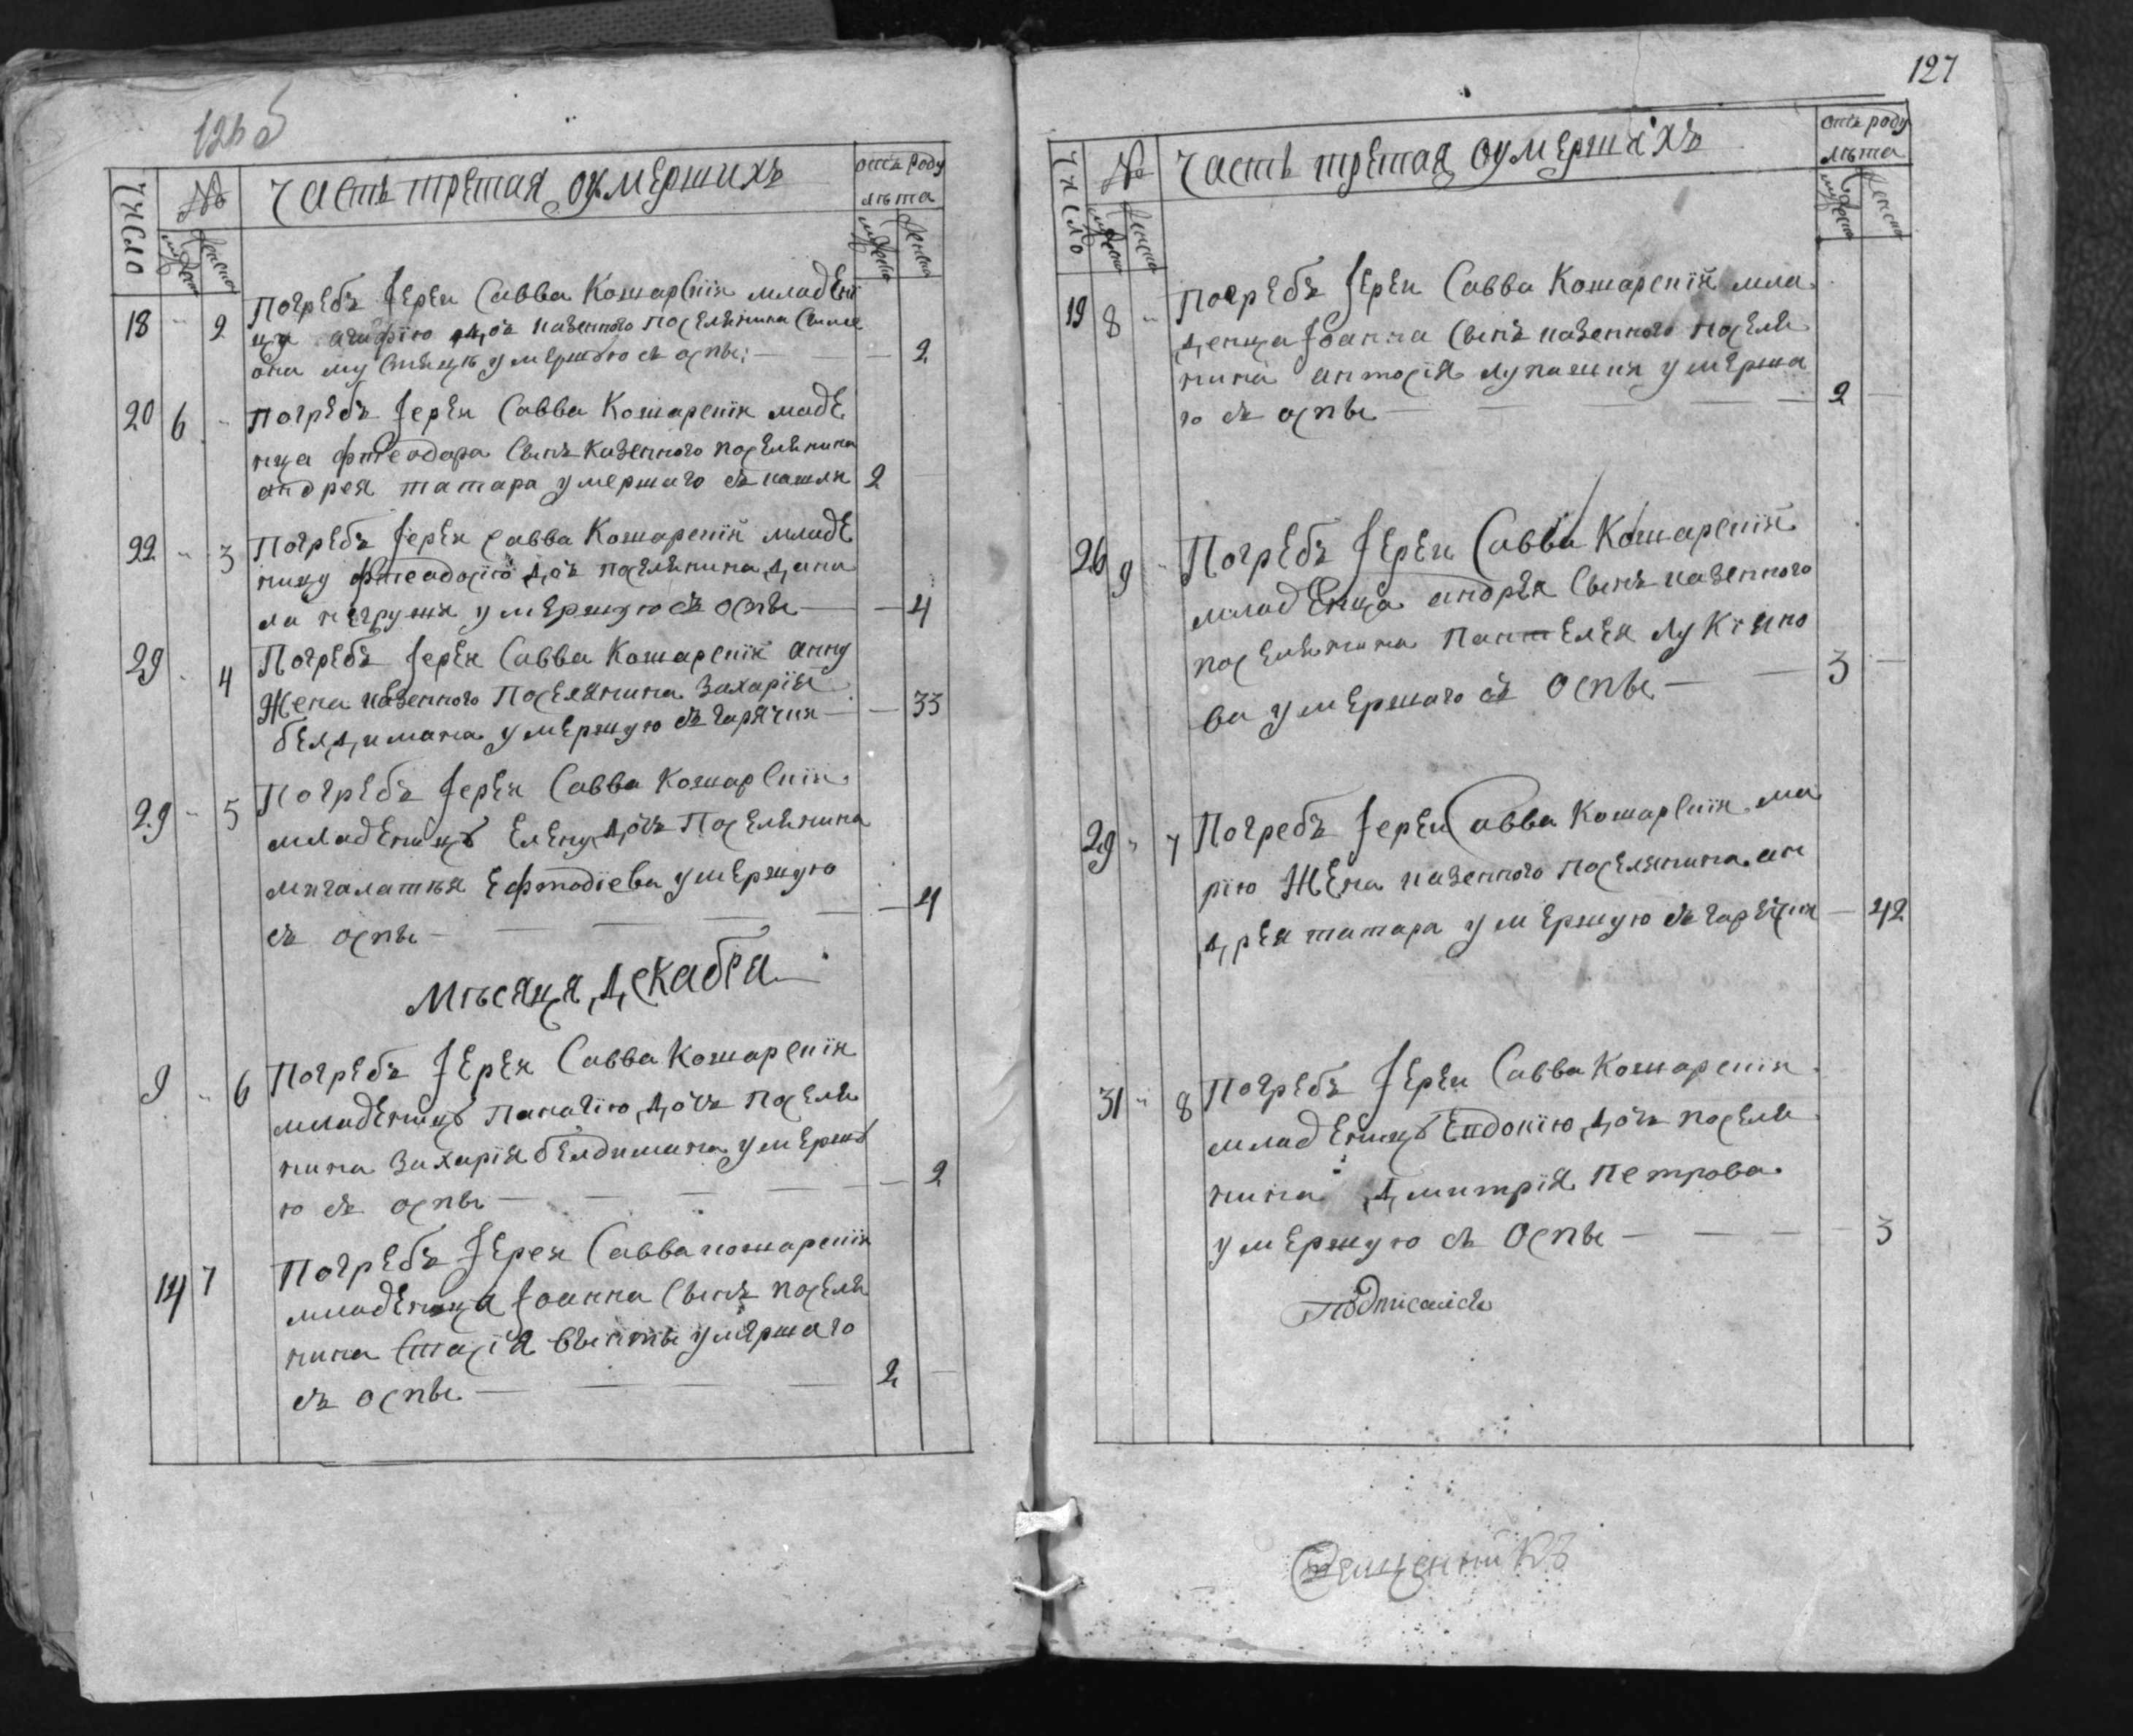 126 б
Число
№
Часть третая оумершихъ
отъ роду
лѣта
18 " 2
Погребъ Іерей Савва Кошарскій младени
цу дочь казенного поселянина Симе
она умершую съ оспы — 2
20 6 "
Погребъ Іерей Савва Кошарскій маде
нца Фтеодора сынъ казенного поселянина
андрея татара умершаго съ кашля 2
22 " 3
Погребъ Іерей Савва Кошарскій младе
ницу Фтеодосію дочь поселянина Дани
ла негруши умершую съ оспы — 4
29 " 4
Погребъ Іерей Савва Кошарскій анну
Жена казенного Поселянина Захарія
белдимана умершую съ гарячки — 33
29 " 5
Погребъ Іерей Савва Кошарскій
младеницу Елену дочь Поселянина
Мигалатія Ефтодіева умершую
съ оспы — 4
Мѣсяця Декабря
9 " 6
Погребъ Іерей Савва Кошарскій
младеницу Панагію дочь поселя
нина Захарія белдимана умершу
ю съ оспы — 2
14 7
Погребъ Іерей Савва кошарскій
младенца Іоанна сынъ поселя
нина Стасія умершаго
съ оспы — 2
127
Число
№
Часть третая оумершихъ
отъ роду
лѣта
19 8 "
Погребъ Іерей Савва Кошарскій мла
денца Іоанна сынъ казенного поселя
нина антосія лупашка умерша
го съ оспы — 2
26 9 "
Погребъ Іерей Савва Кошарскій
младенца андрея сынъ казенного
поселянина Пантелея Лукіяно
ва умершаго съ оспы — 3
29 " 7
Погребъ Іерей Савва Кошарскій ма
рію Жена казенного поселянина ан
дрея татара умершую съ гарячки — 42
31 " 8
Погребъ Іерей Савва Кошарскій
младеницу Евдокію дочь поселя
нина Дмитрія Петрова
умершую съ Оспы — 3
Подписалсъ
Священникъ